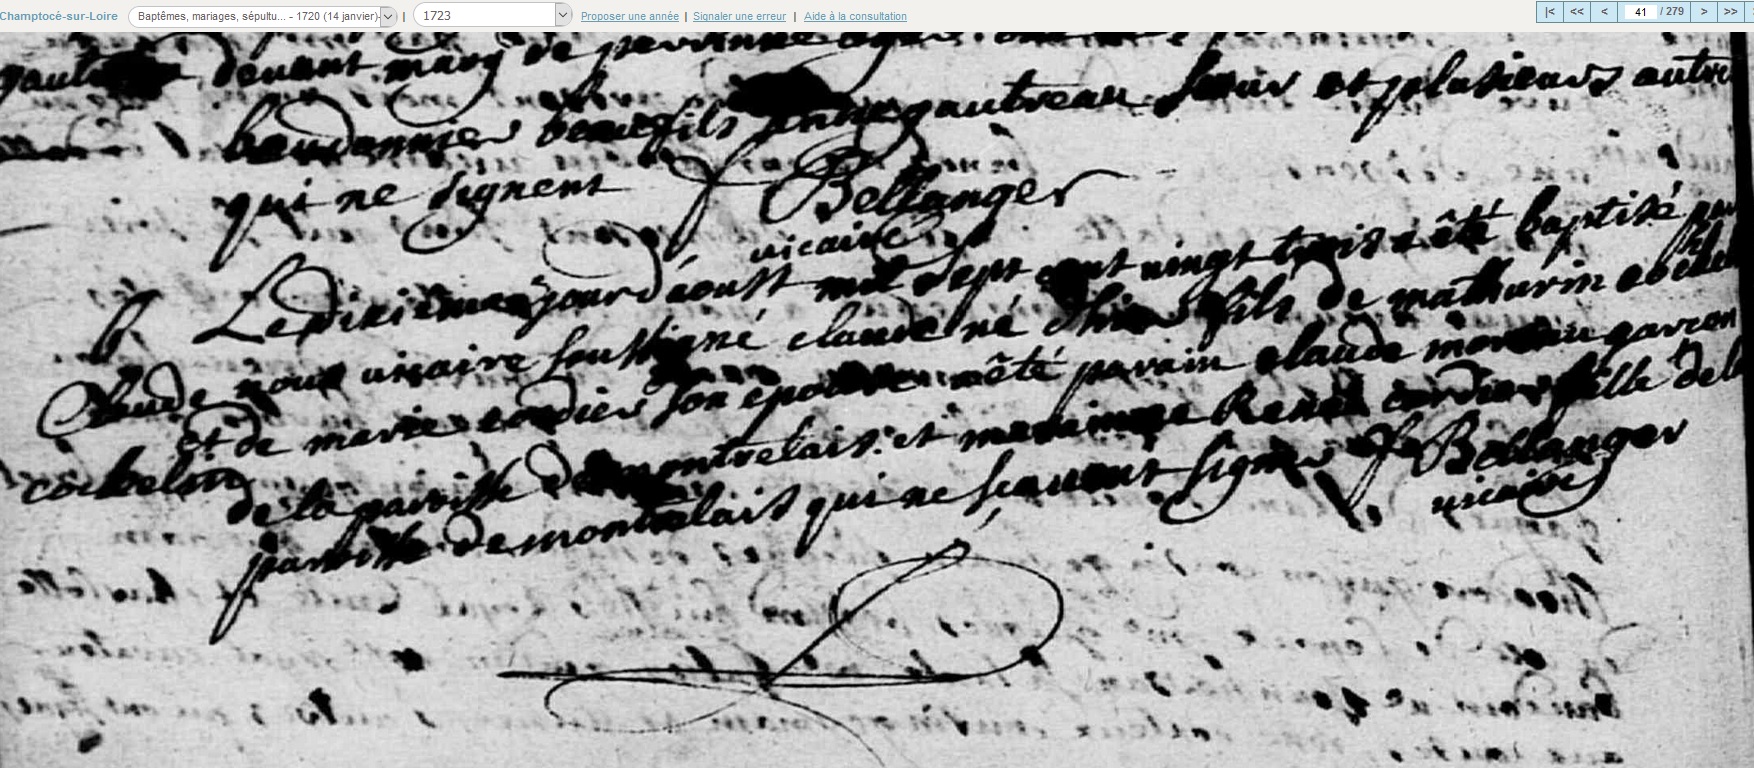 Champtocé-sur-Loire Baptêmes, mariages, sépultu... - 1720 (14 janvier)- | 1723 Proposer une année | Signaler une erreur | Aide à la consultation |< << < 41 / 279 > >>
devant marg de perrinne
baudonnier beaufils anne gautreau sœur et plusieurs autre
qui ne signent f Bellanger
vicaire
Le dixiéme jour d'aoust mil sept cent vingt trois a êté baptisé par
Claude nous vicaire soussigné claude né hier fils de mathurin
cocbelin et de marie cordier son epouse a êté parain claude moreau garcon
de la paroisse de montrelais et maraine Renée cordier fille de la
paroisse de montrelais qui ne scauent signer f Bellanger
vicaire